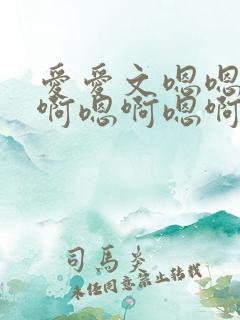 爱爱文嗯嗯
啊嗯啊嗯啊
司马炎
未经同意禁止转载